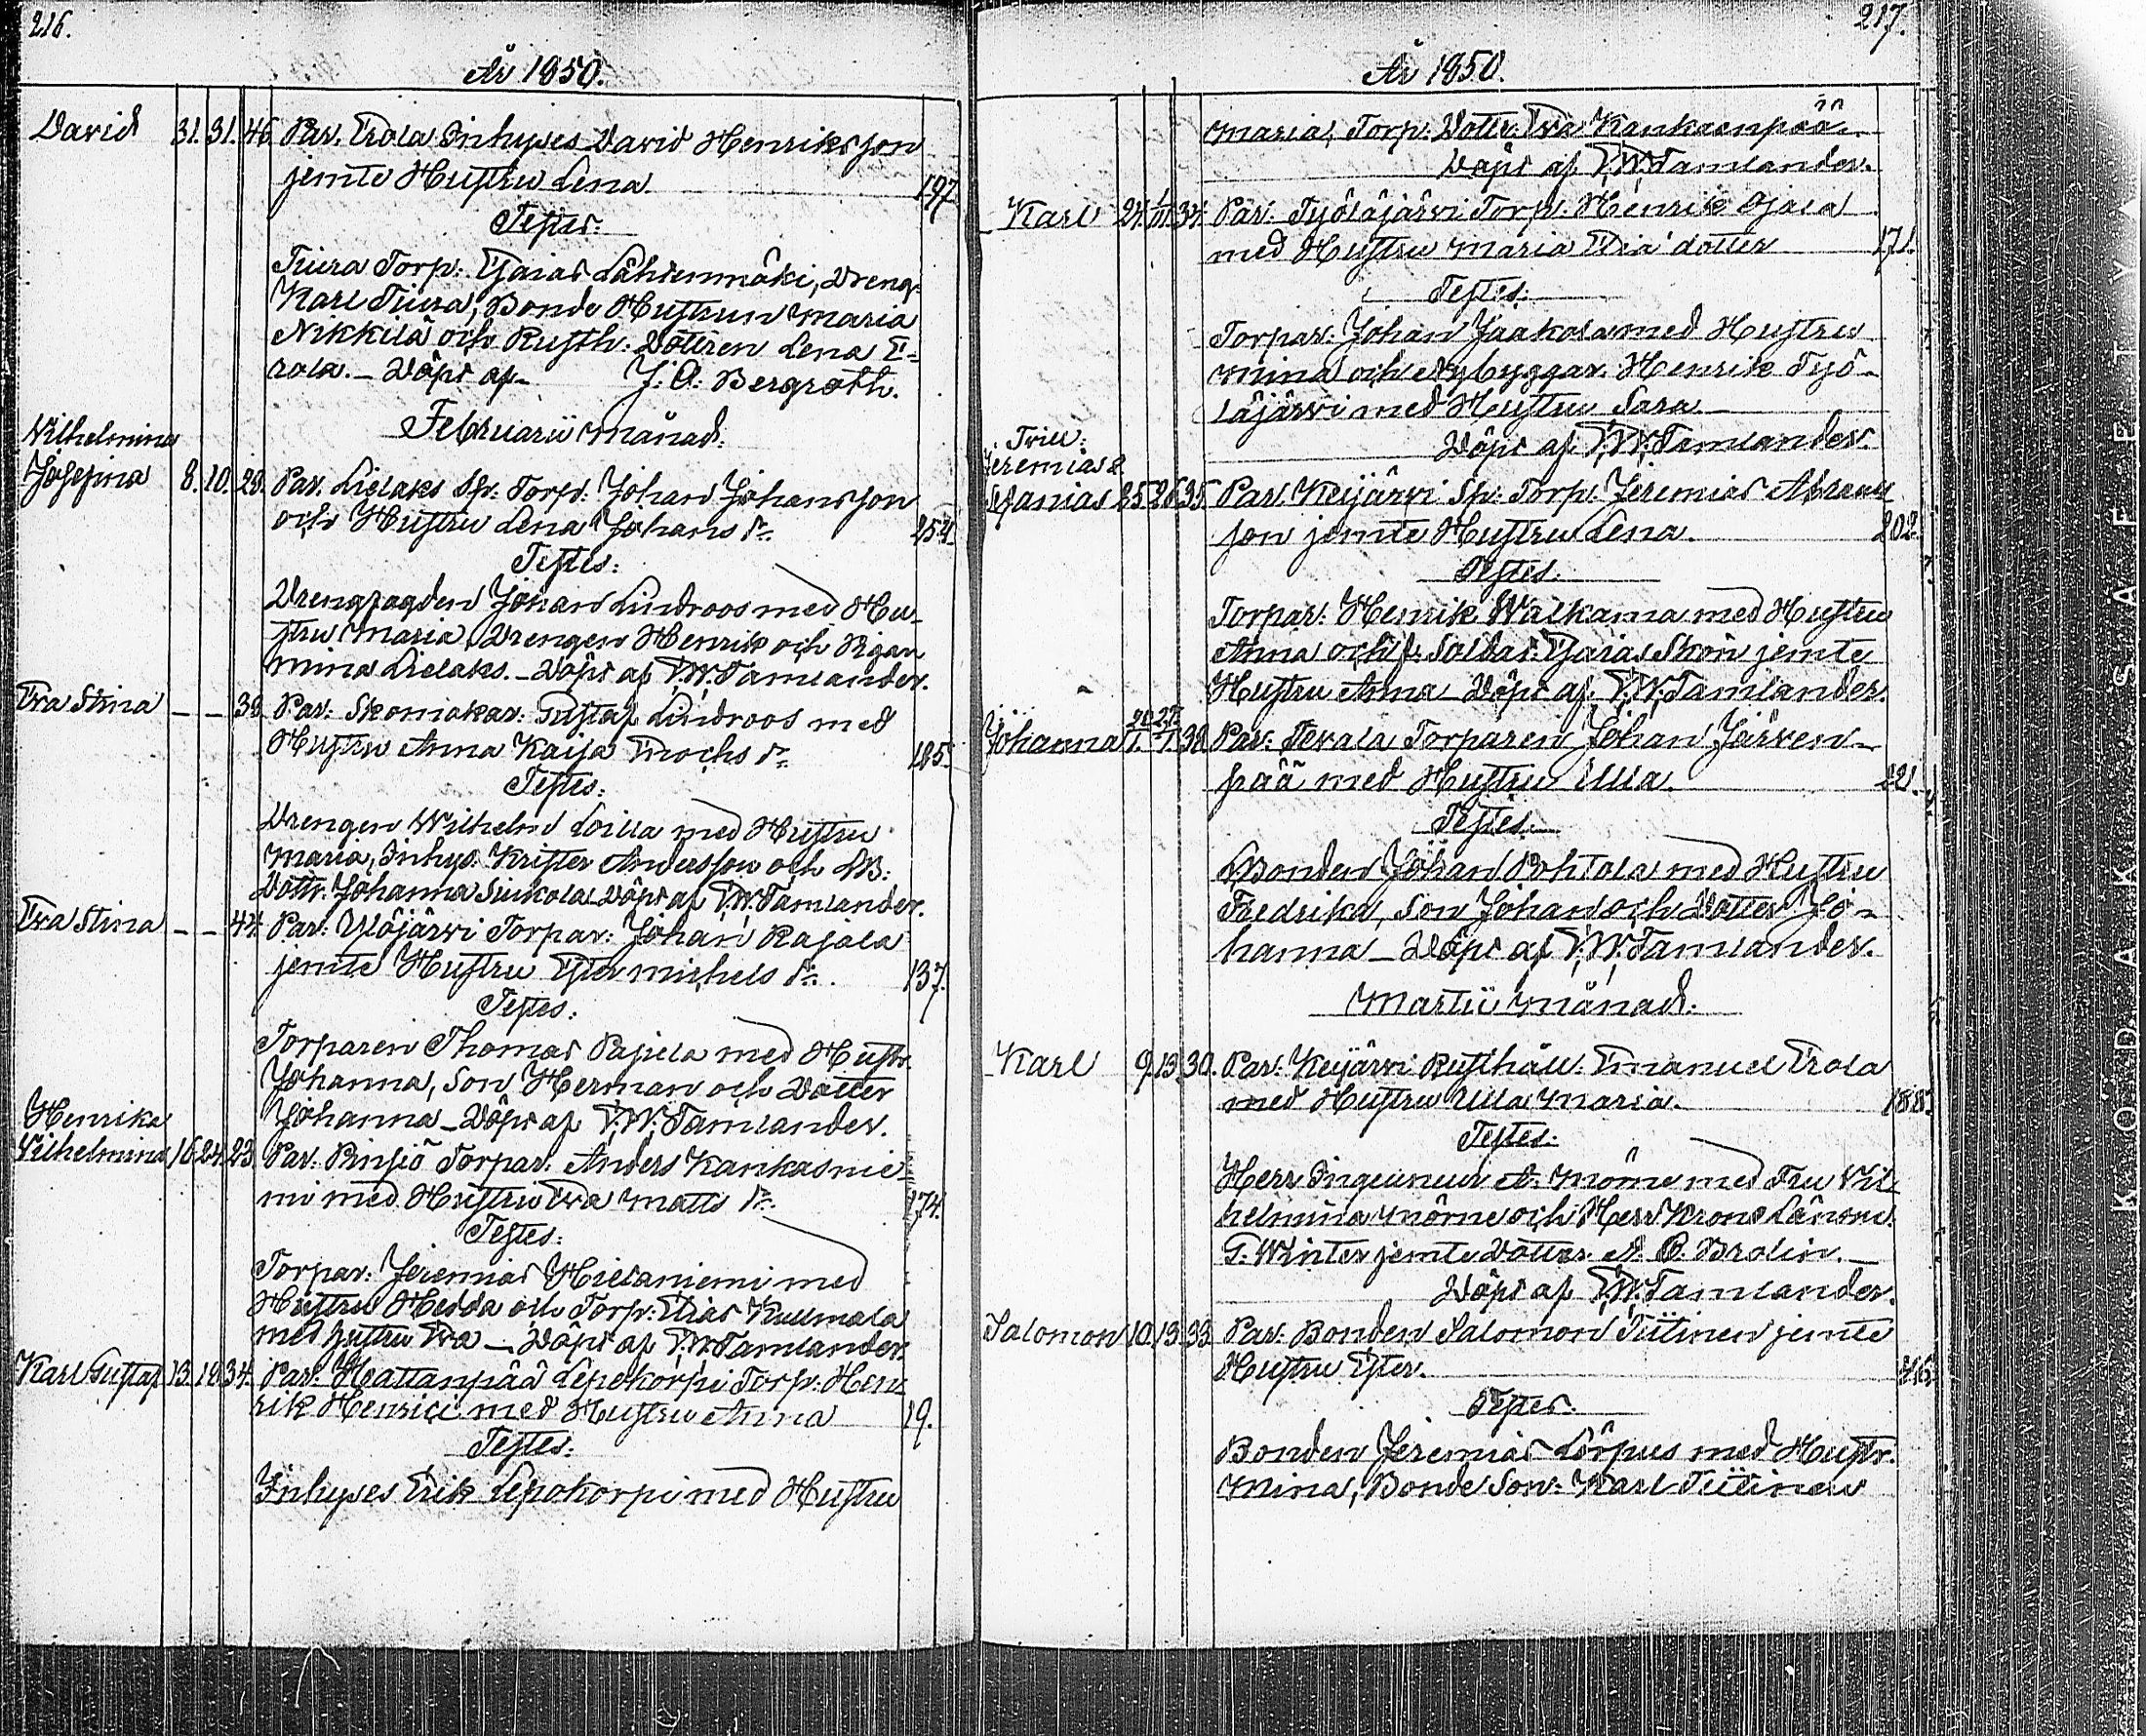 216.
År 1850.
David 31. 31. 46 Par. Erola Inhyses David Henriksson
jemte Hustru Lena. 197
Testes:
Tiura Torp: Esaias Lähtenmäki, Dreng.
Karl Tiura, Bonde Hustrun Maria
Nikkilä och Rusth: Dottren Lena E=
rola. – Döpt af J: O: Bergroth.
Februarii Månad.
Vilhelmina
Josefina 8. 10. 29. Par. Lielaks Sp: Torp: Johan Johansson
och Hustru Lena Johans dr. 254.
Testes:
Drengfogden Johan Lindroos med Hu-
stru Maria, Drengen Henrik och Pigan
Mina Lielaks. – Döpt af F. W. Tamlander.
Eva Stina – – 39. Par. Skomakar. Gustaf Lindroos med
Hustru Anna Kaija Enochs dr. 185.
Testes:
Drengen Wilhelm Loilla med Hustru
Maria, Inhys. Krister Andersson och
Dottr. Johanna Siukola. Döpt af F. W. Tamlander.
Eva Stina – – 44. Par: Ylöjärvi Torpar: Johan Rajala
jemte Hustru Ester Michels dr. 137.
Testes:
Torparen Thomas Pajula med Hustr.
Johanna, Son Herman och Dotter
Johanna – Döpt af F. W. Tamlander.
Henrika
Vilhelmina 16. 24. 23. Par: Pinsiö Torpar. Anders Kankasnie-
mi med Hustru Eva Matts dr. 174.
Testes:
Torpar. Jeremias Hietaniemi med
Hustru Hedda och Torp: Elias Kullmala
med hustru Eva – Döpt af F. W. Tamlander.
Karl Gustaf 13. 19. 34. Par. Hattanpää Lepokorpi Torp. Hen=
rik Henrici med Hustru Anna 19.
Testes:
Inhyses Erik Lepokorpi med Hustru
217.
År 1850.
Maria, Torp. Dottr. Eva Kankaanpää.
Döpt af F. W. Tamlander.
Karl 24. 1/III. 34. Par. Työläjärvi Torp. Henrik Ojala
med Hustru Maria Eliædotter 171.
Testes:
Torpar: Johan Jaakola med Hustru
Mina och Nybyggar. Henrik Työ-
läjärvi med Hustru Sara. –
Döpt af F. W. Tamlander.
Trill:
Jeremias &
Ananias 25. 26. 35. Par. Keijärvi Sp: Torp. Jeremias
son jemte Hustru Lena. 202.
Testes.
Torpar: Henrik Walkama med Hustru
Anna och f. Soldat: Esaias Skön jemte
Hustru Anna – Döpt af F. W. Tamlander.
Johanna 20/1. 27/1. 38. Par: Tevala Torparen Johan Järven-
pää med Hustru Ulla. 221.
Testes:
Bonden Johan Pohtola med Hustru
Fredrika, Son Johan och Dotter Jo-
hanna – Döpt af F. W. Tamlander.
Martii Månad:
Karl 9. 13. 30. Par: Keijärvi Rusthåll: Emanuel Erola
med Hustru Ulla Maria. 188.
Testes:
Herr Ingeuneur A. Mörne med Fru Vil-
helmina Mörne och Herr Krono Länsm.
G. Winter jemte Dottr. A. B. Brolin. –
Döpt af F. W. Tamlander.
Salomon 10. 13. 33. Par: Bonden Salomon Tiilinen jemte
Hustru Ester.
Testes:
Bonden Jeremias Lörpus med Hustr.
Mina, Bonde Son: Karl Tiilinen
KODAK SAFETY